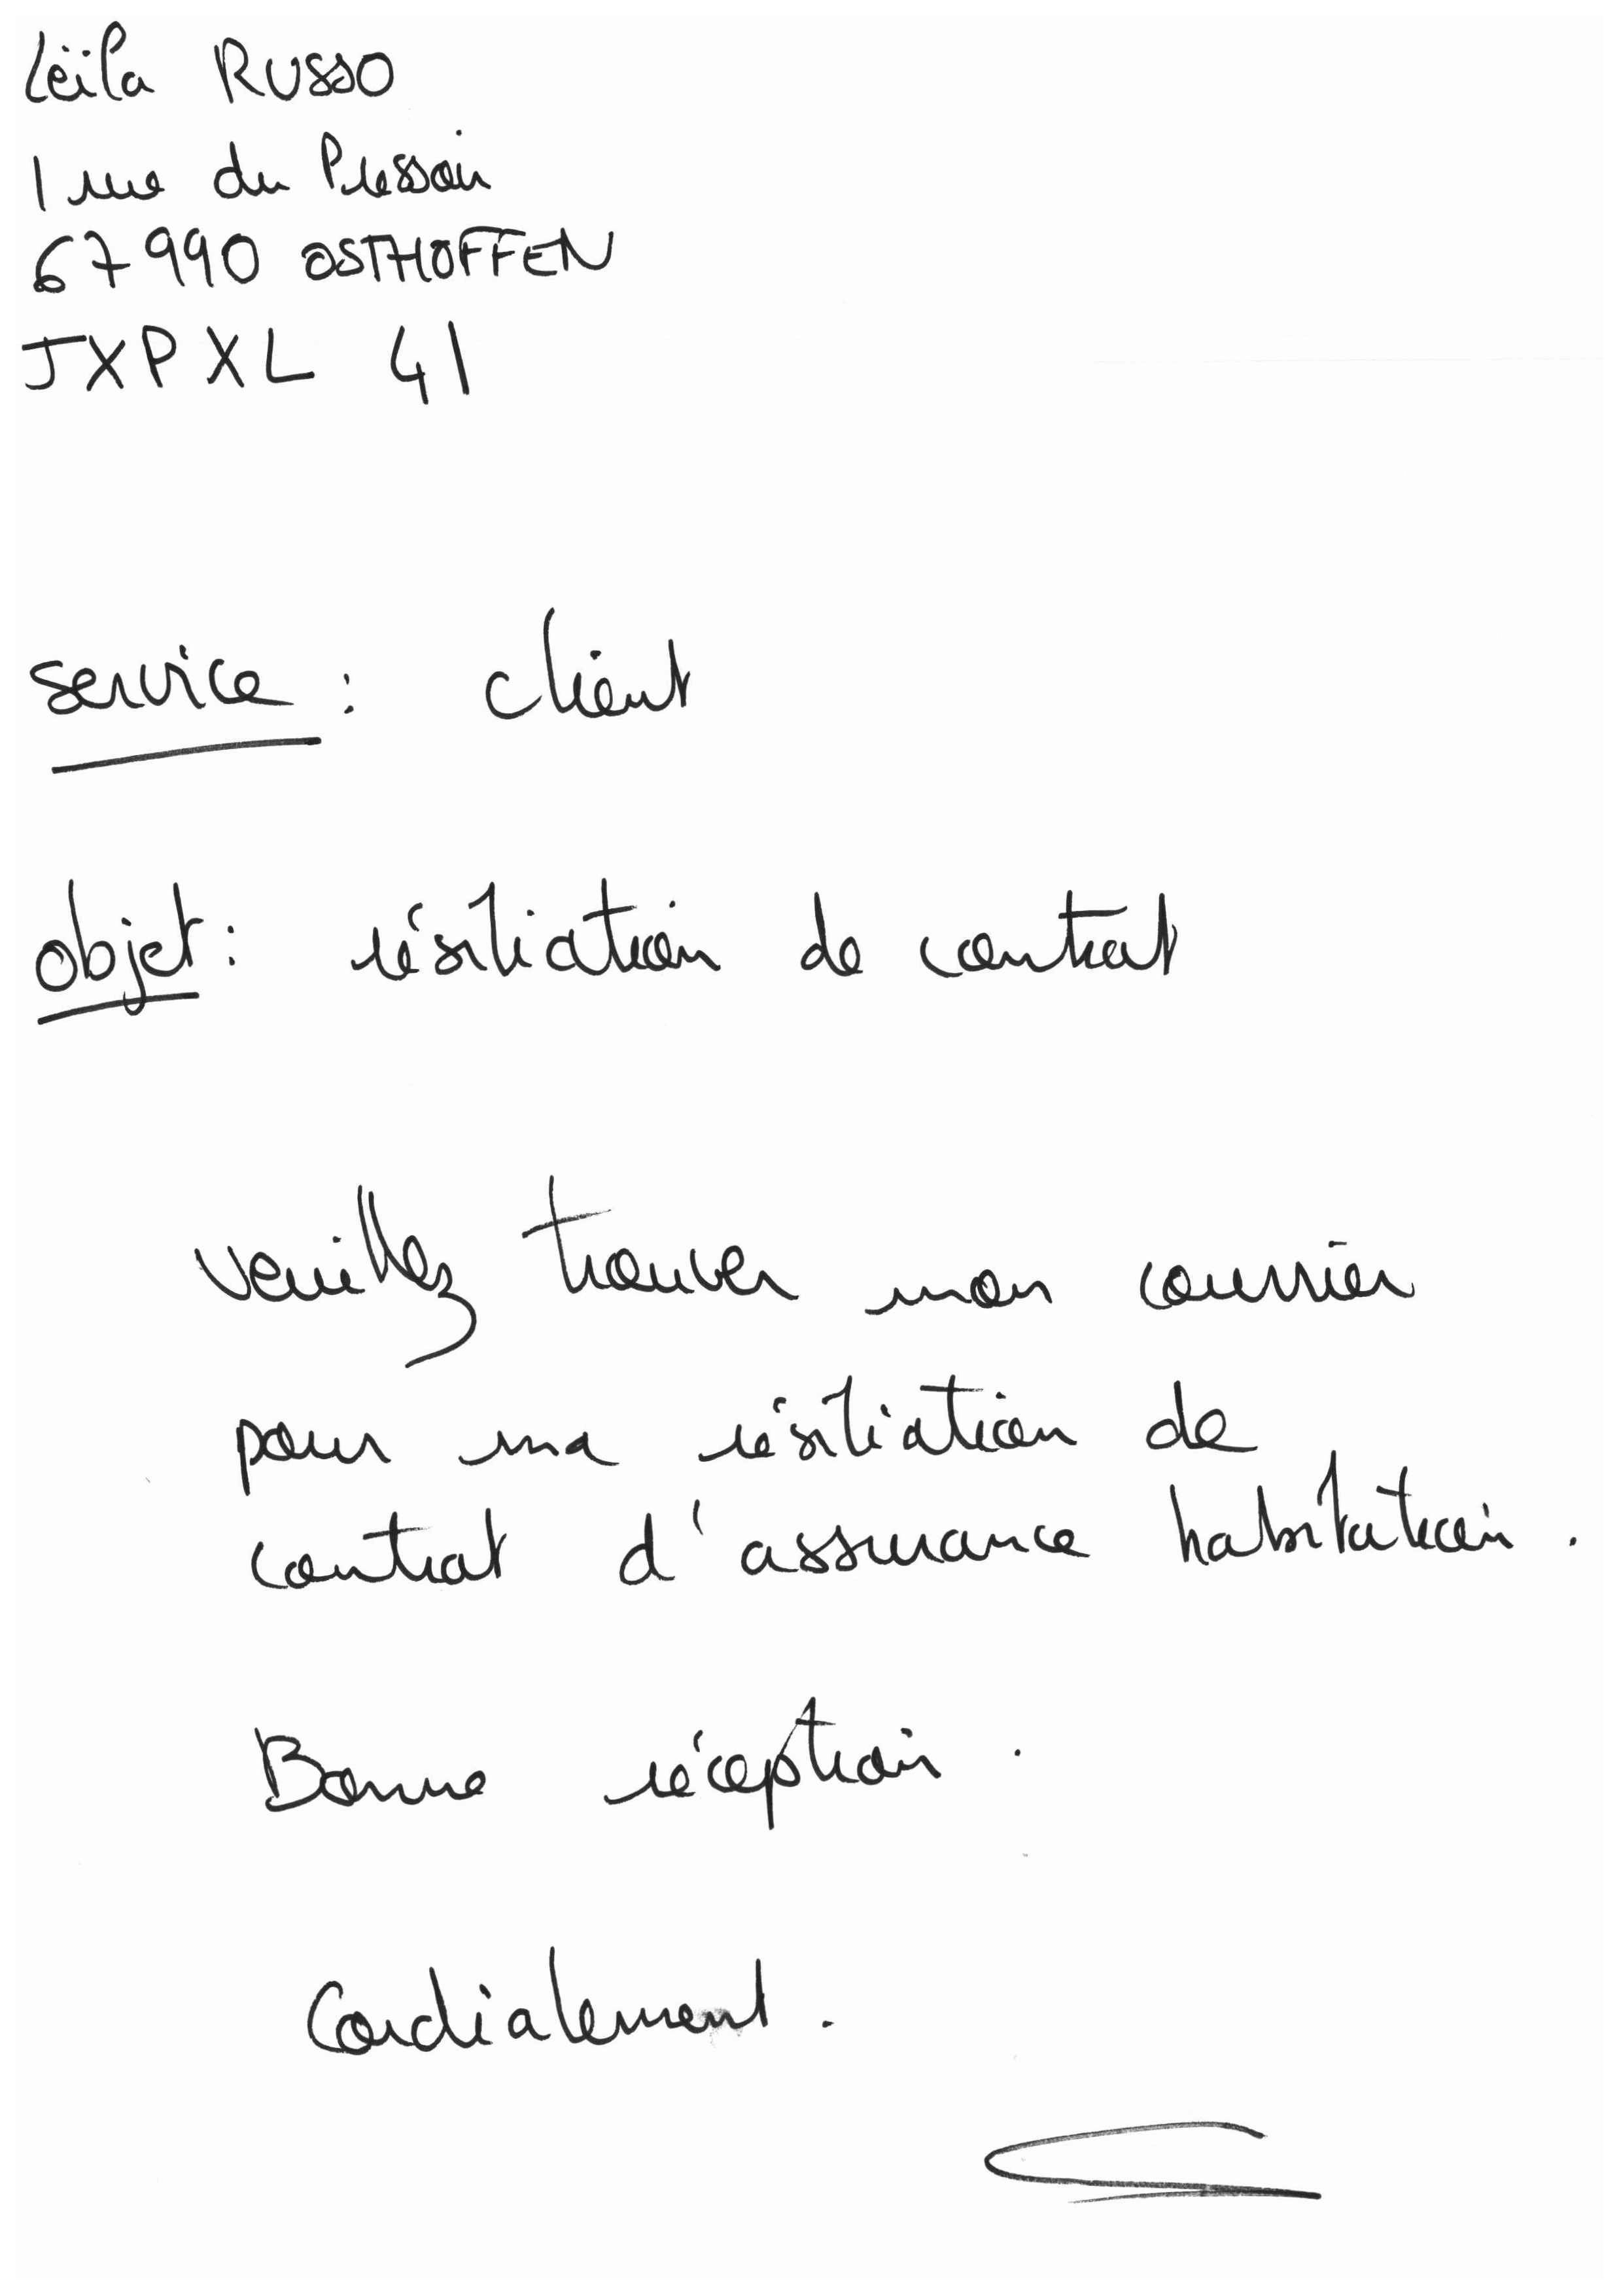 Lëila RUSSO
1 rue du Pressoir
67990 OSTHOFFEN
JXPXL 41
service : client
objet : résiliation de contrat
veuillez trouver mon courrier
pour ma résiliation de
contrat d'assurance habitation.
Bonne réception.
Cordialement.